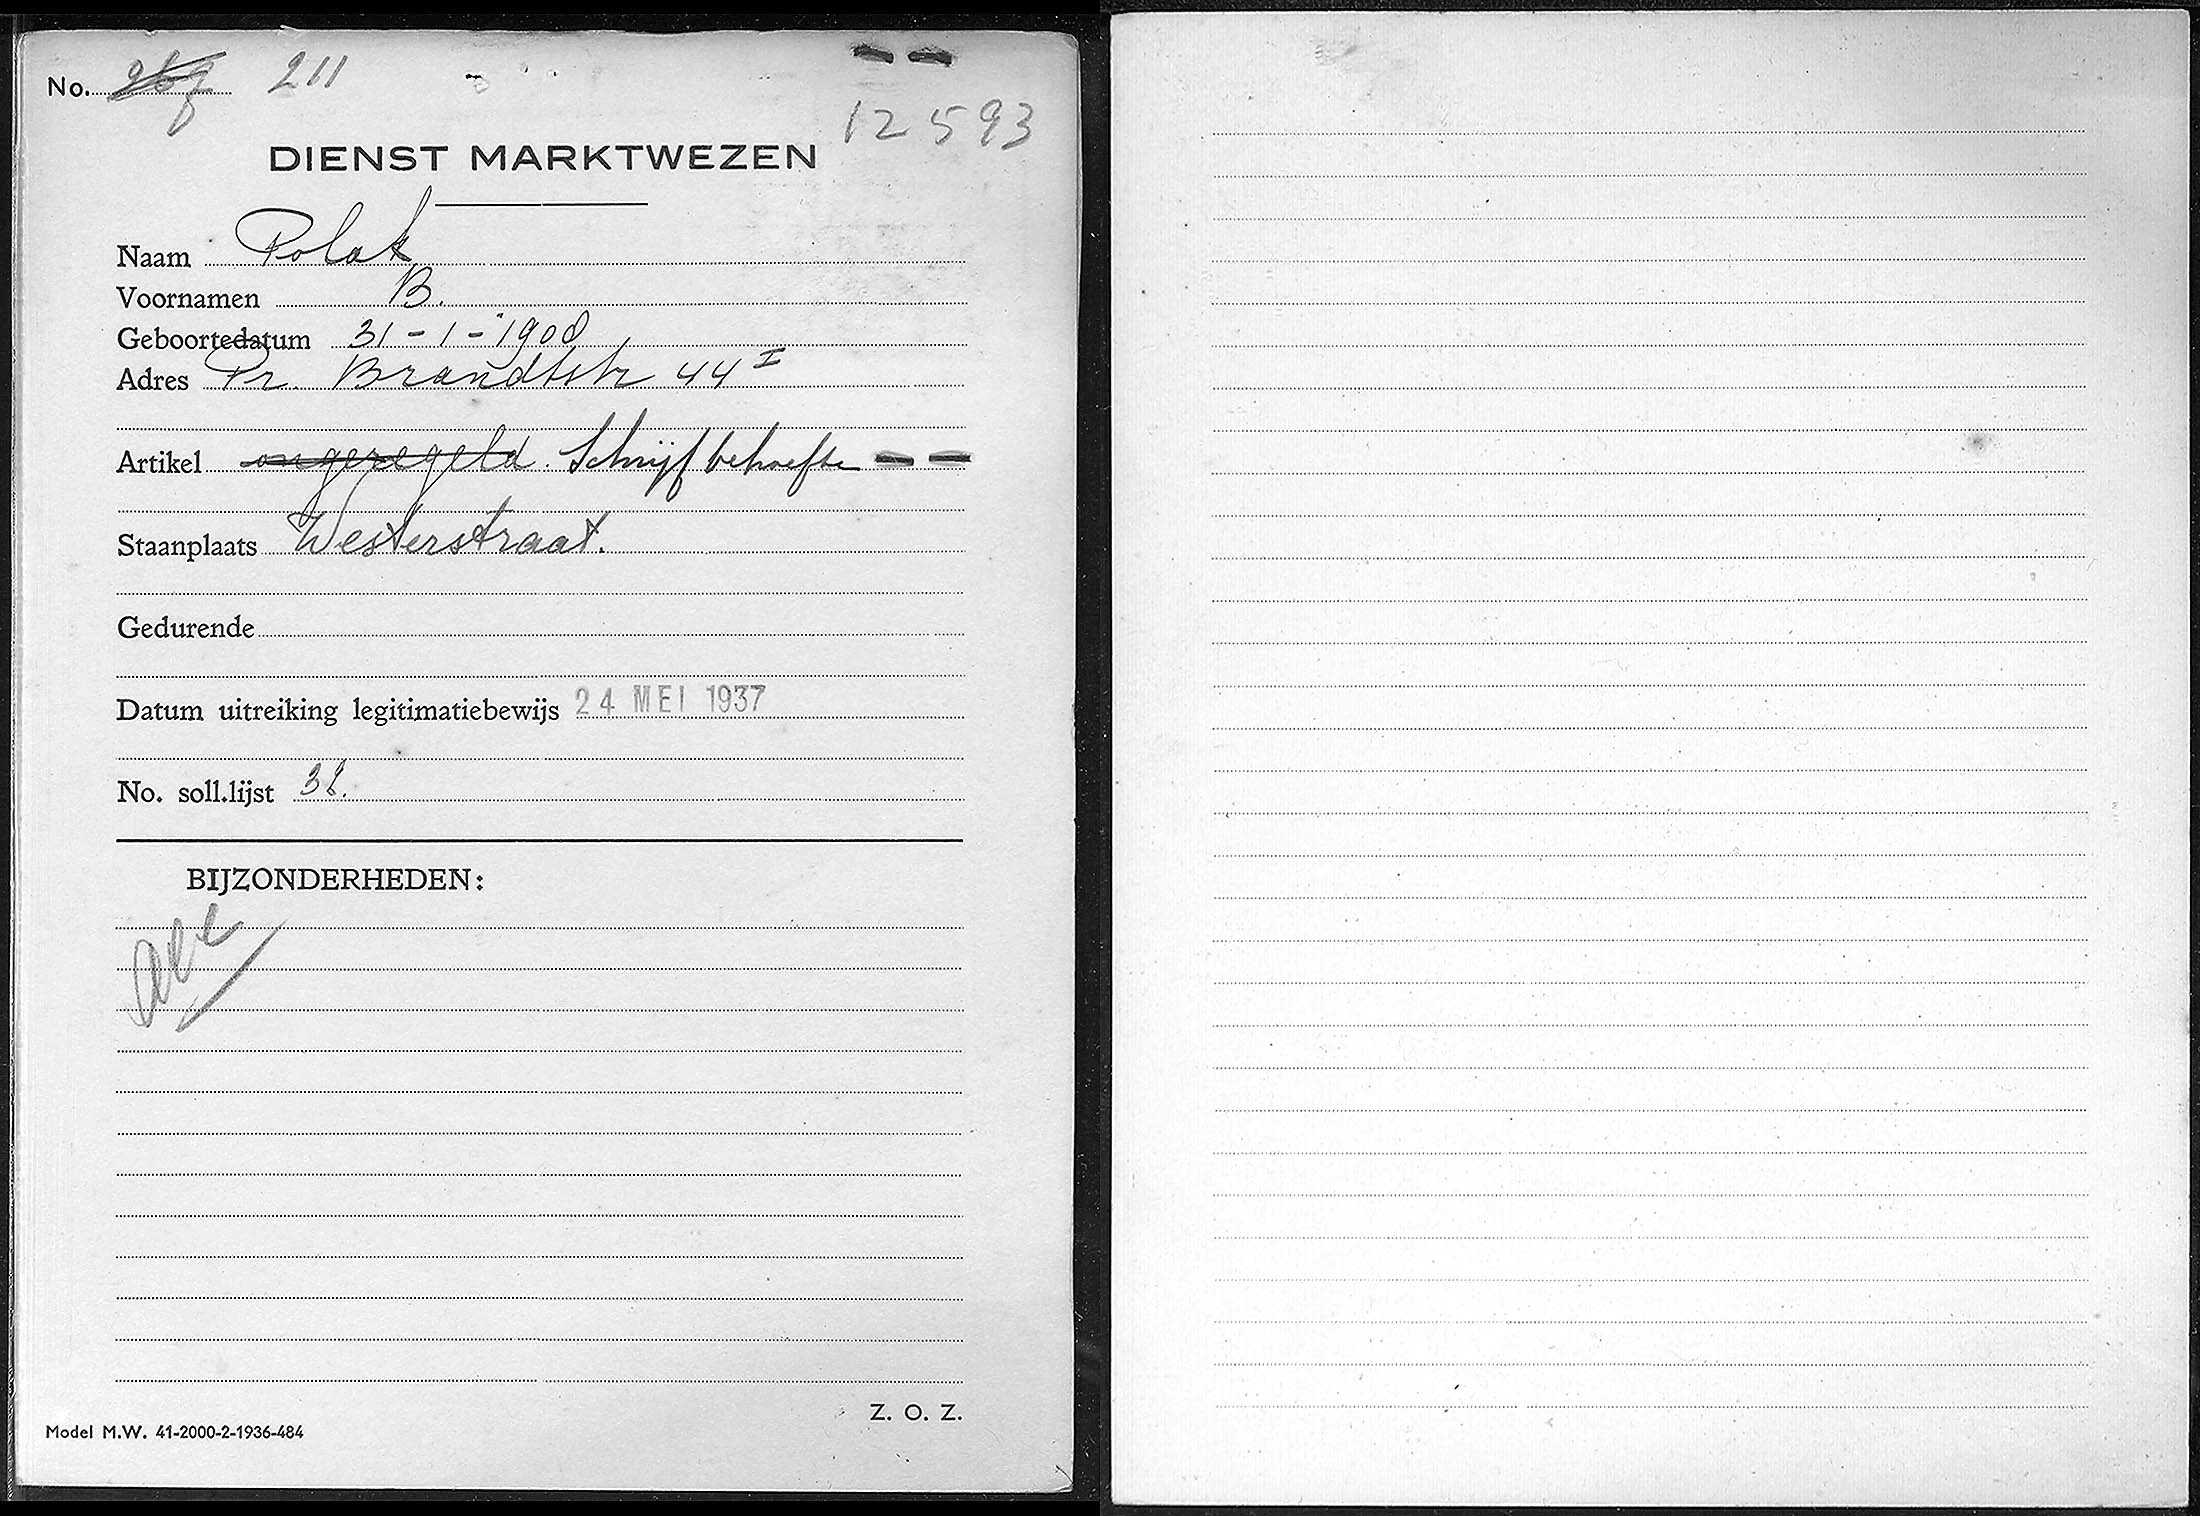 No. 267 211
12593
DIENST MARKTWEZEN
Naam Polak
Voornamen B.
Geboortedatum 31-1-1908
Adres Pr. Brandtstr 44 I
Artikel ongeregeld. Schrijfbehoefte
Staanplaats Westerstraat.
Gedurende
Datum uitreiking legitimatiebewijs 24 MEI 1937
No. soll.lijst 38.
BIJZONDERHEDEN:
Z. O. Z.
Model M.W. 41-2000-2-1936-484